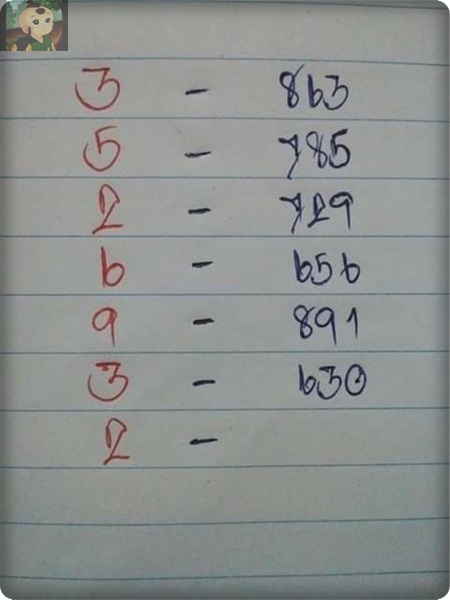 3 - 863
5 - 785
2 - 729
6 - 656
9 - 891
3 - 630
2 -